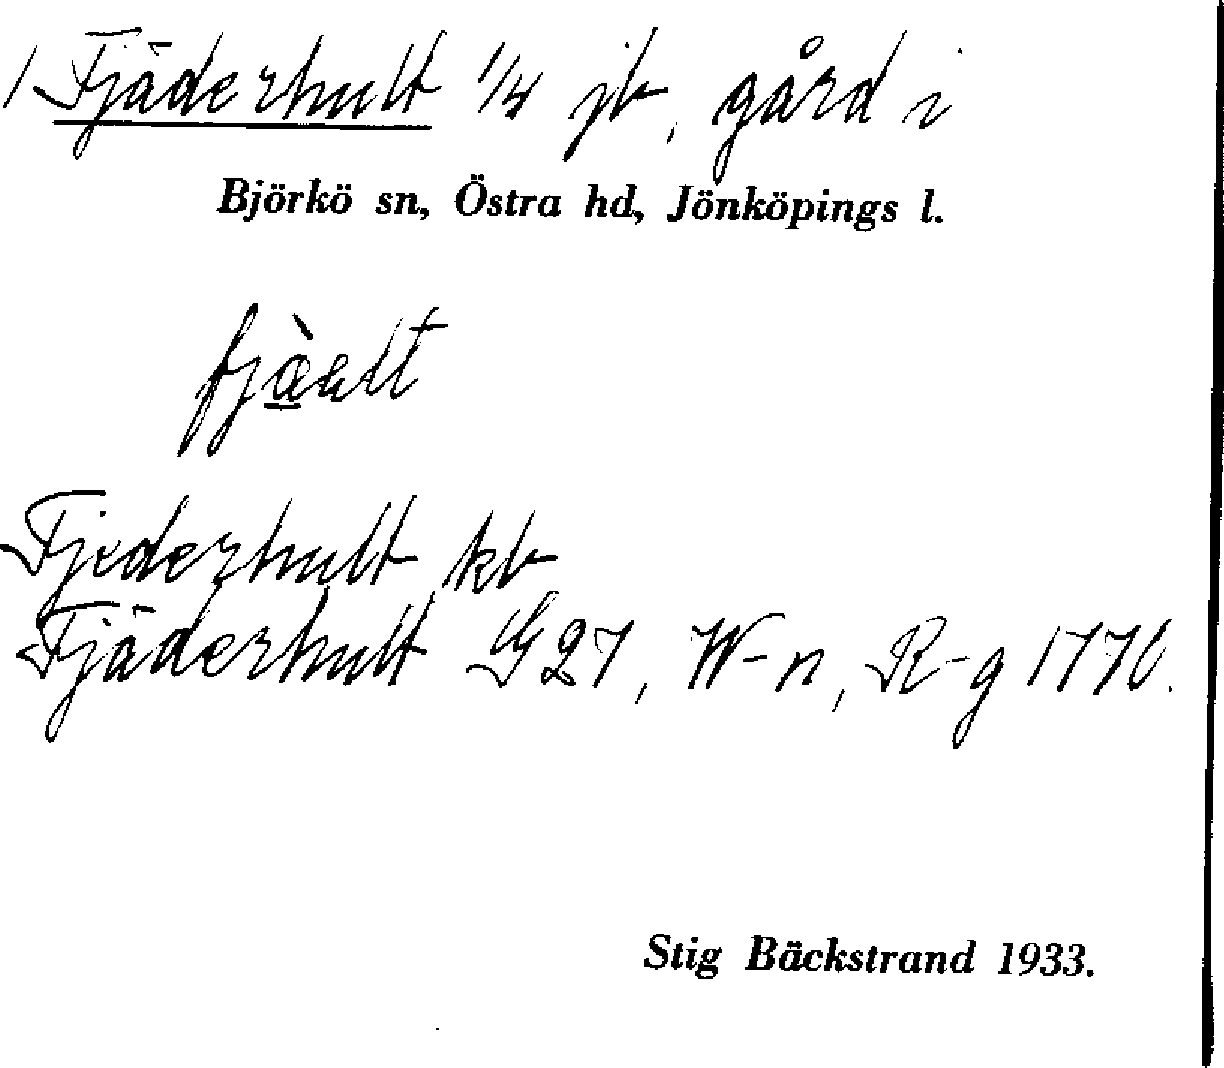 1 Fjäderhult 1/4 jb, gård i
Björkö sn, Östra hd, Jönköpings l.
Fjederhult kb
Fjäderhult G27, W-n, R-g 1770.
Stig Bäckstrand 1933.